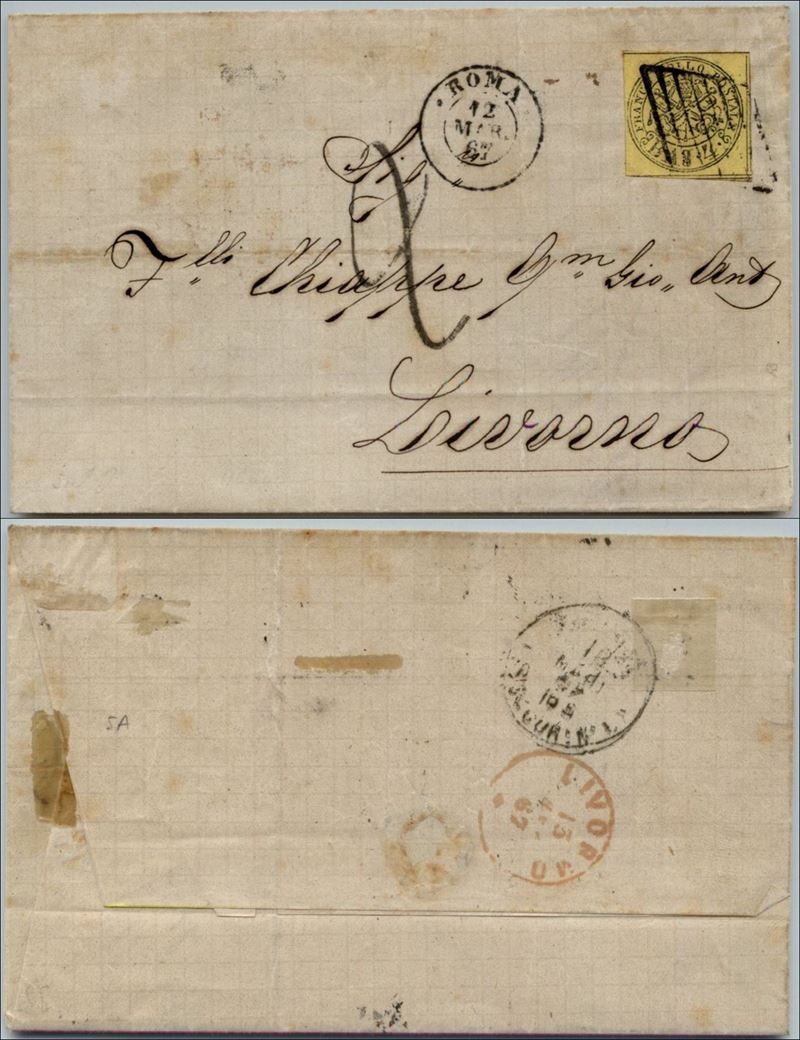 ROMA
12
MAR.
67
FRANCO BOLLO POSTALE
BAJ
Sig.
2
F.lli Chiappe Qm Gio,, Ant
Livorno
5A
MAR
LIVORNO
13
67